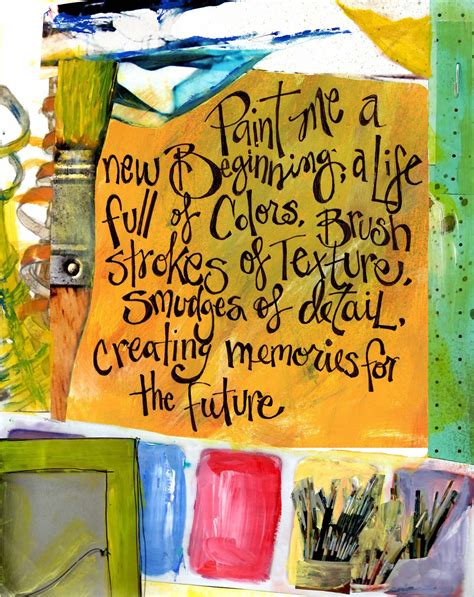 Paint me a
new Beginning; a Life
full of Colors. Brush
strokes of Texture,
smudges of detail,
creating memories for
the future